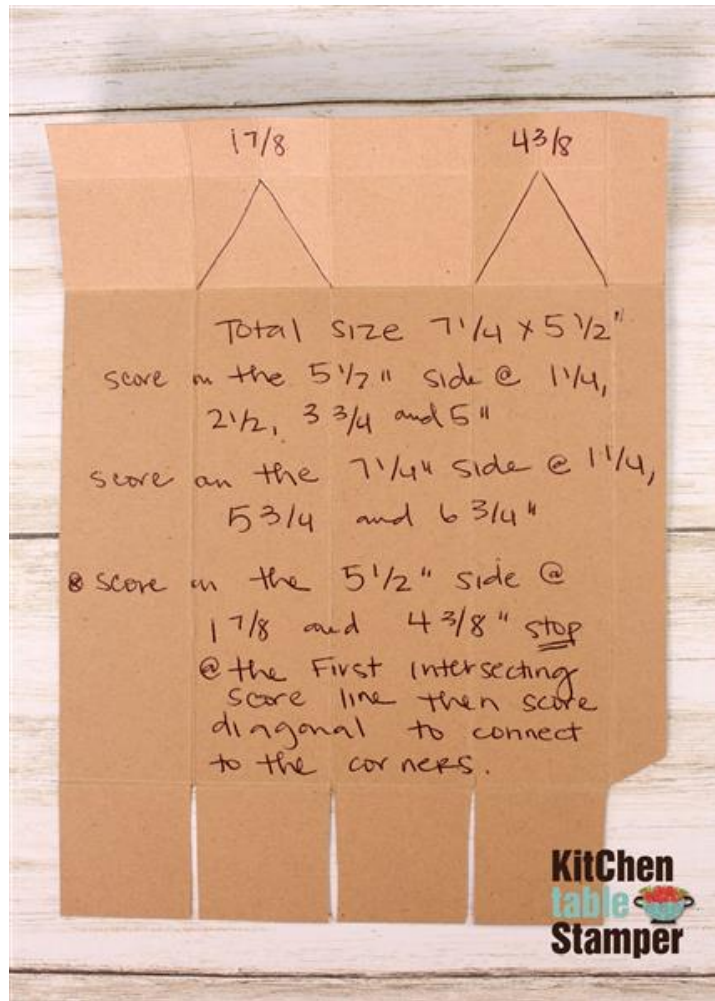 1 7/8 4 3/8
Total size 7 1/4 x 5 1/2"
score on the 5 1/2" side @ 1 1/4,
2 1/2, 3 3/4 and 5"
score on the 7 1/4" side @ 1 1/4,
5 3/4 and 6 3/4"
score on the 5 1/2" side @
1 7/8 and 4 3/8" stop
@ the First intersecting
score line then score
diagonal to connect
to the corners.
KitChen
table
Stamper